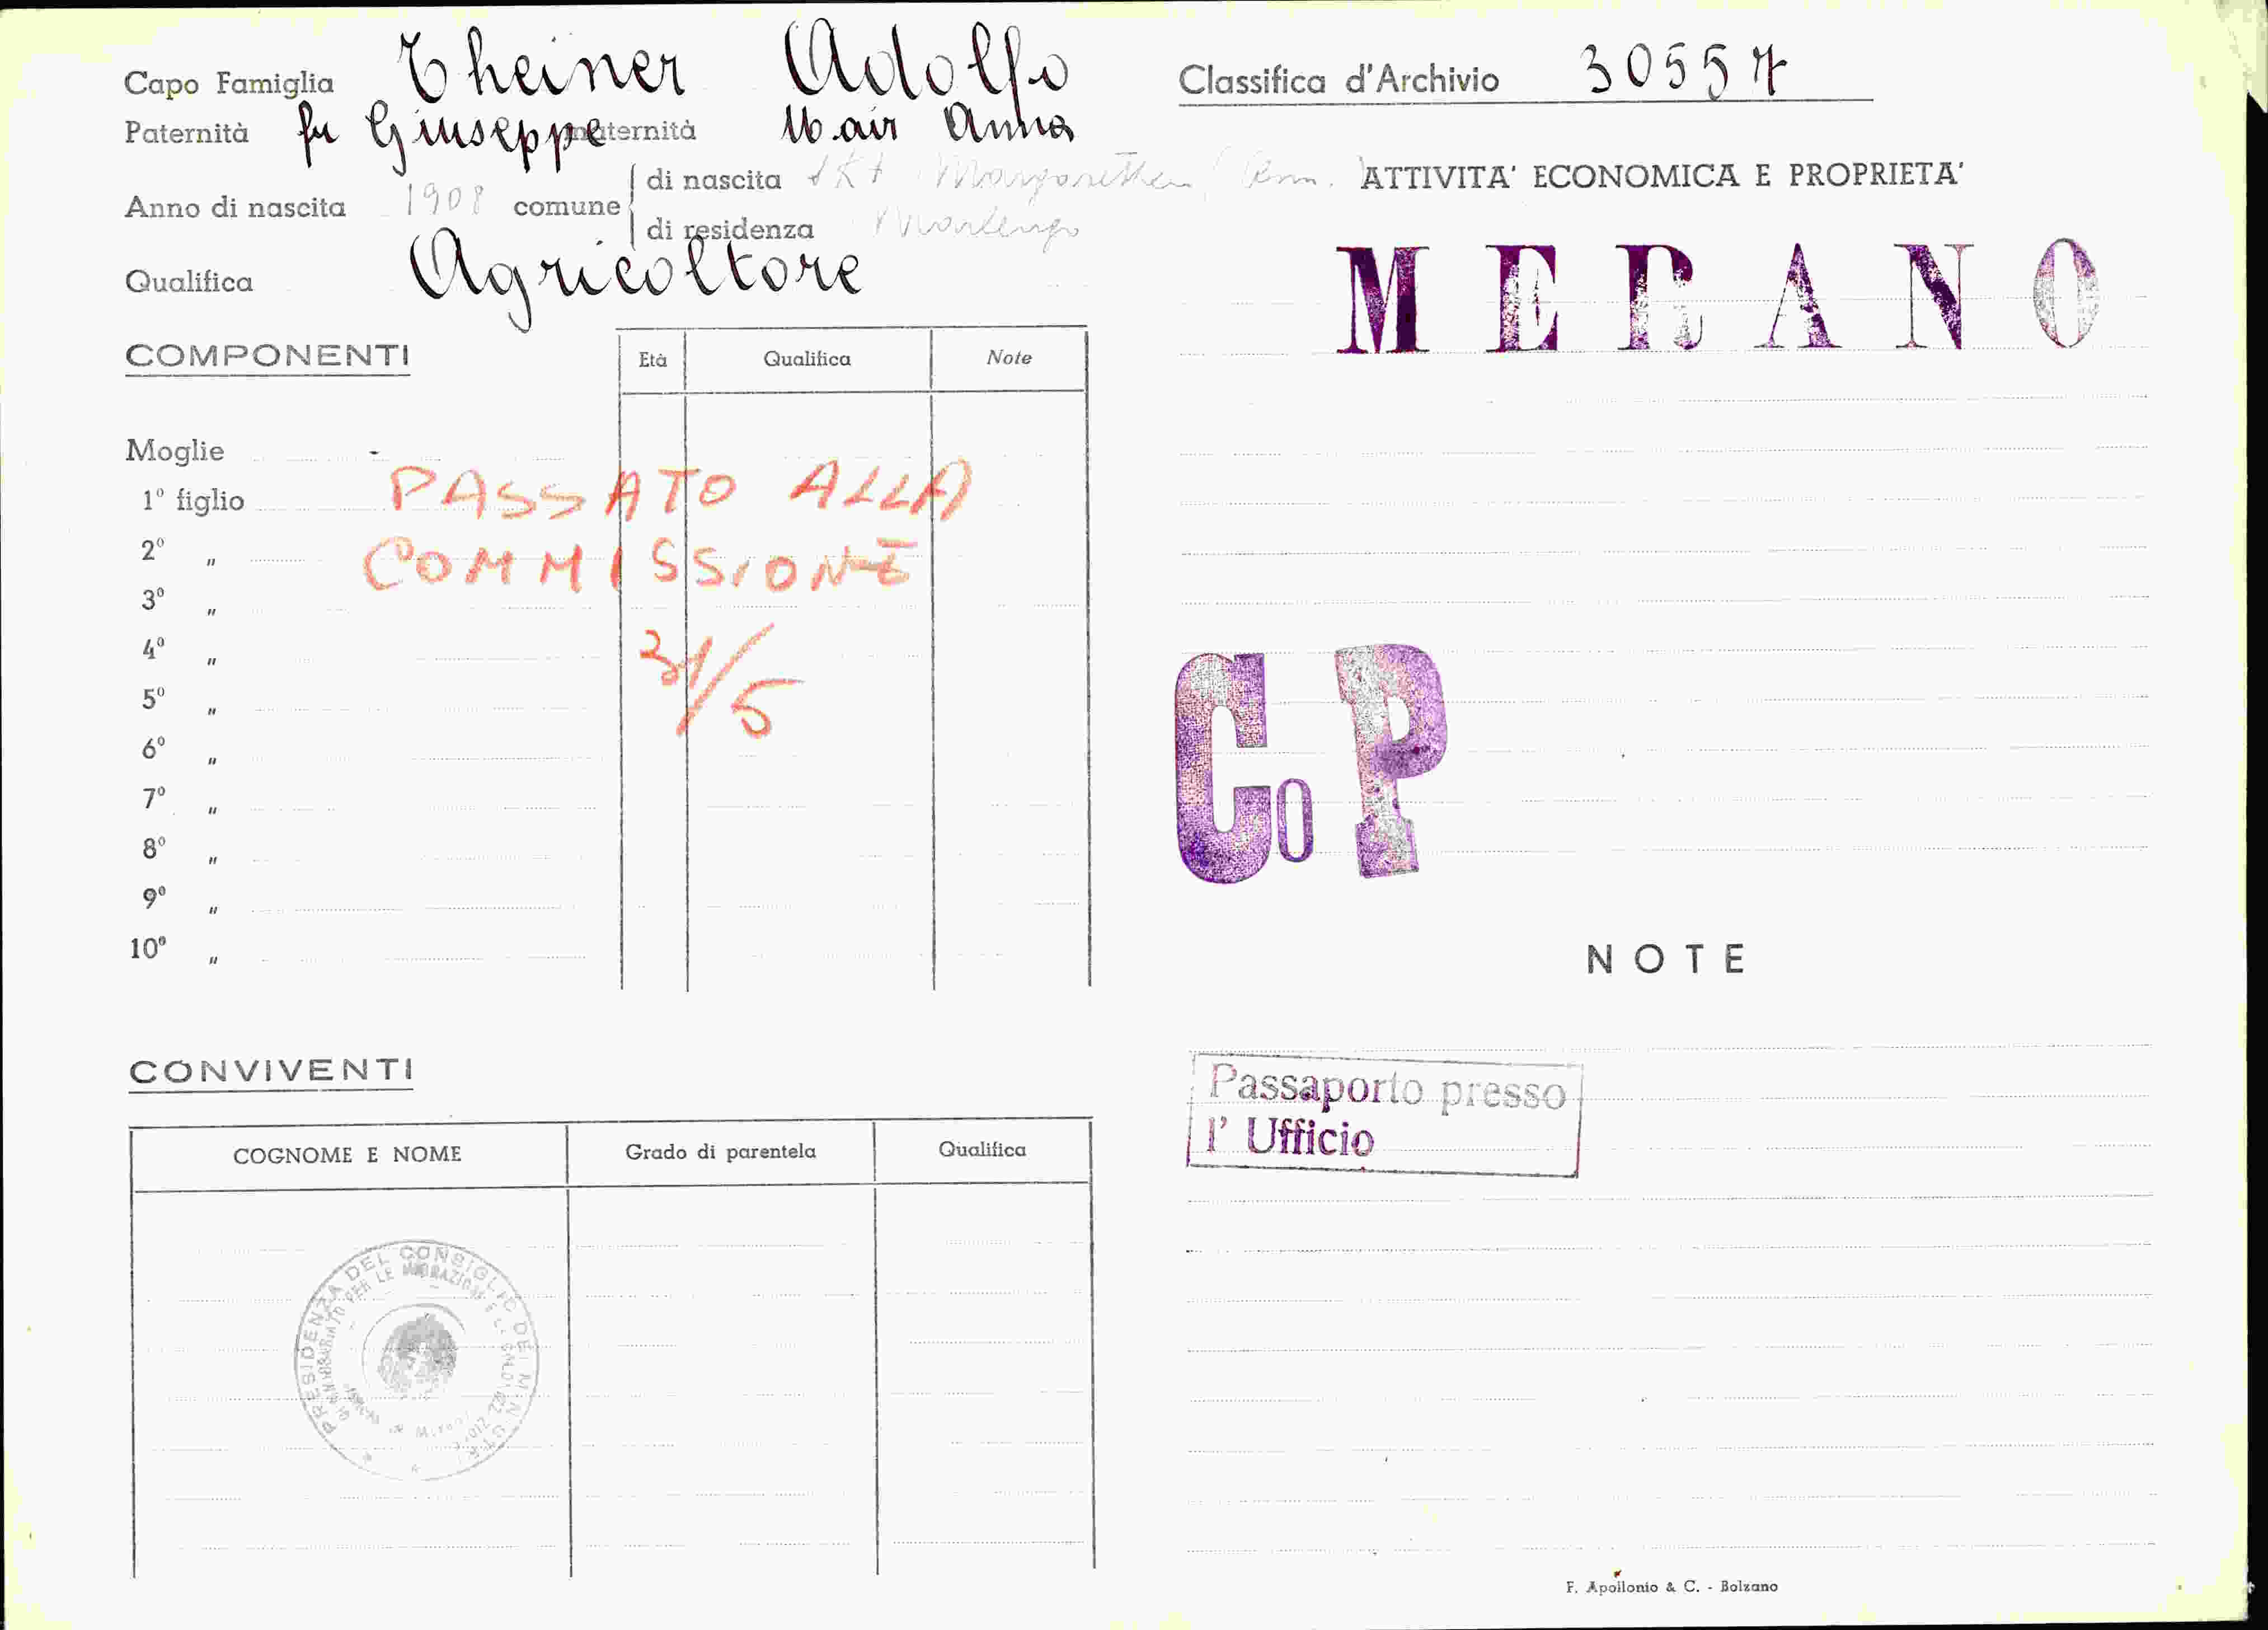 Capo Famiglia Theiner Adolfo
Paternità fu Giuseppe maternità Mair Anna
Anno di nascita 1908 comune
di nascita St Margarethen
di residenza Marlengo
Qualifica Agricoltore
COMPONENTI
Età Qualifica Note
Moglie -
1º figlio
2º "
3º "
4º "
5º "
6º "
7º "
8º "
9º "
10º "
PASSATO ALLA
COMMISSIONE
31/5
CONVIVENTI
COGNOME E NOME Grado di parentela Qualifica
PRESIDENZA DEL CONSIGLIO DEI MINISTRI
PER LE MIGRAZIONI E
Classifica d'Archivio 30557
ATTIVITA' ECONOMICA E PROPRIETA'
MERANO
CoP
NOTE
Passaporto presso
l' Ufficio
F. Apollonio & C. - Bolzano